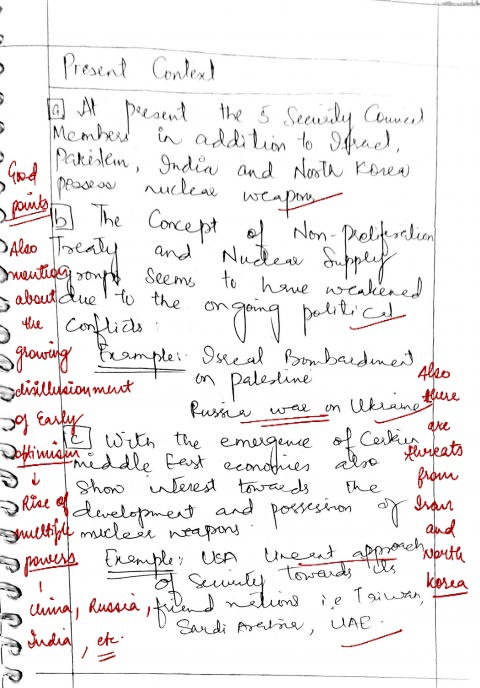 Present Context
a At present the 5 Security Council
Members in addition to Israel,
Pakistan, India and North Korea
possess nuclear weapons
b The Concept of Non-Proliferation
Treaty and Nuclear Supply
group seems to have weakened
due to the ongoing political
Conflicts:
Example: Isreal Bombardment
on palestine
Russia war on Ukraine
c With the emergence of
middle East economies also
Show interest towards the
development and possession of
nuclear weapons
Example: USA approach
of Security towards its
friend nations i.e Taiwan,
Saudi , UAE.
Good
points
Also
mention
about
the
growing
disillusionment
of Early
optimism
↓
Rise of
multiple
powers
China, Russia,
India, etc.
Also
there
are
threats
from
Iran
and
North
Korea